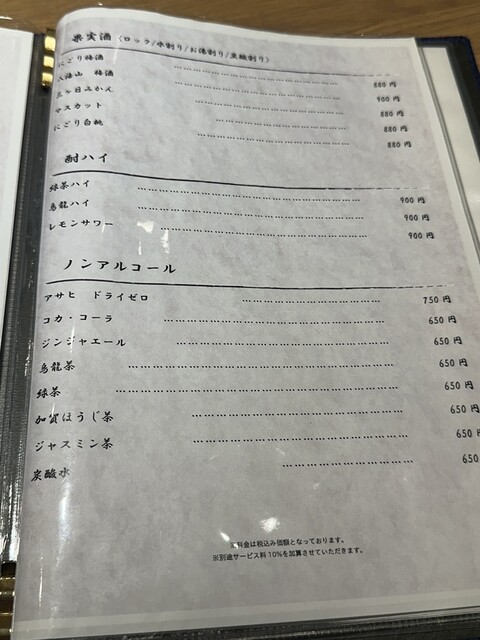 果実酒（ロック/水割り/お湯割り/炭酸割り）
にごり梅酒 880円
八海山 梅酒 900円
三ヶ日みかん 880円
マスカット 880円
にごり白桃 880円
酎ハイ
緑茶ハイ 900円
烏龍ハイ 900円
レモンサワー 900円
ノンアルコール
アサヒ ドライゼロ 750円
コカ・コーラ 650円
ジンジャエール 650円
烏龍茶 650円
緑茶 650円
加賀ほうじ茶 650円
ジャスミン茶 650円
炭酸水 650
料金は税込み価額となっております。
※別途サービス料10%を加算させていただきます。